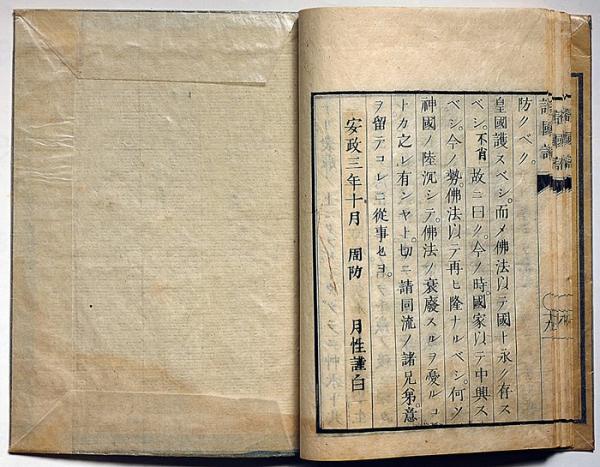 護國論
防クベク
皇國護スベシ。而メ佛法以テ國ト永ク存ス
ベシ。不肖故ニ曰ク。今ノ時。國家以テ中興ス
ベシ。今ノ勢。佛法以テ再ヒ隆ナルベシ。何ソ
神國ノ陸沉シテ。佛法ノ衰廢スルヲ憂ルコ
トカ之レ有シヤト。切ニ請同流ノ諸兄弟意
ヲ留テコレニ從事セヨ。
安政三年十月 周防 月性謹白